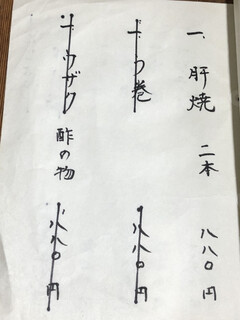 一、肝焼 二本 八八〇円
一、う巻 八八〇円
一、ウザク 酢の物 八八〇円